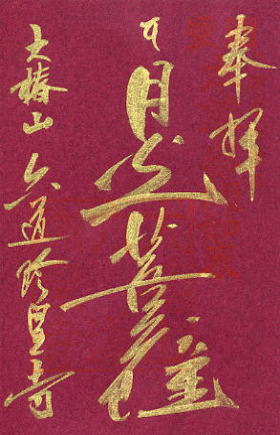 奉拝
月光菩薩
大椿山 六道珍皇寺